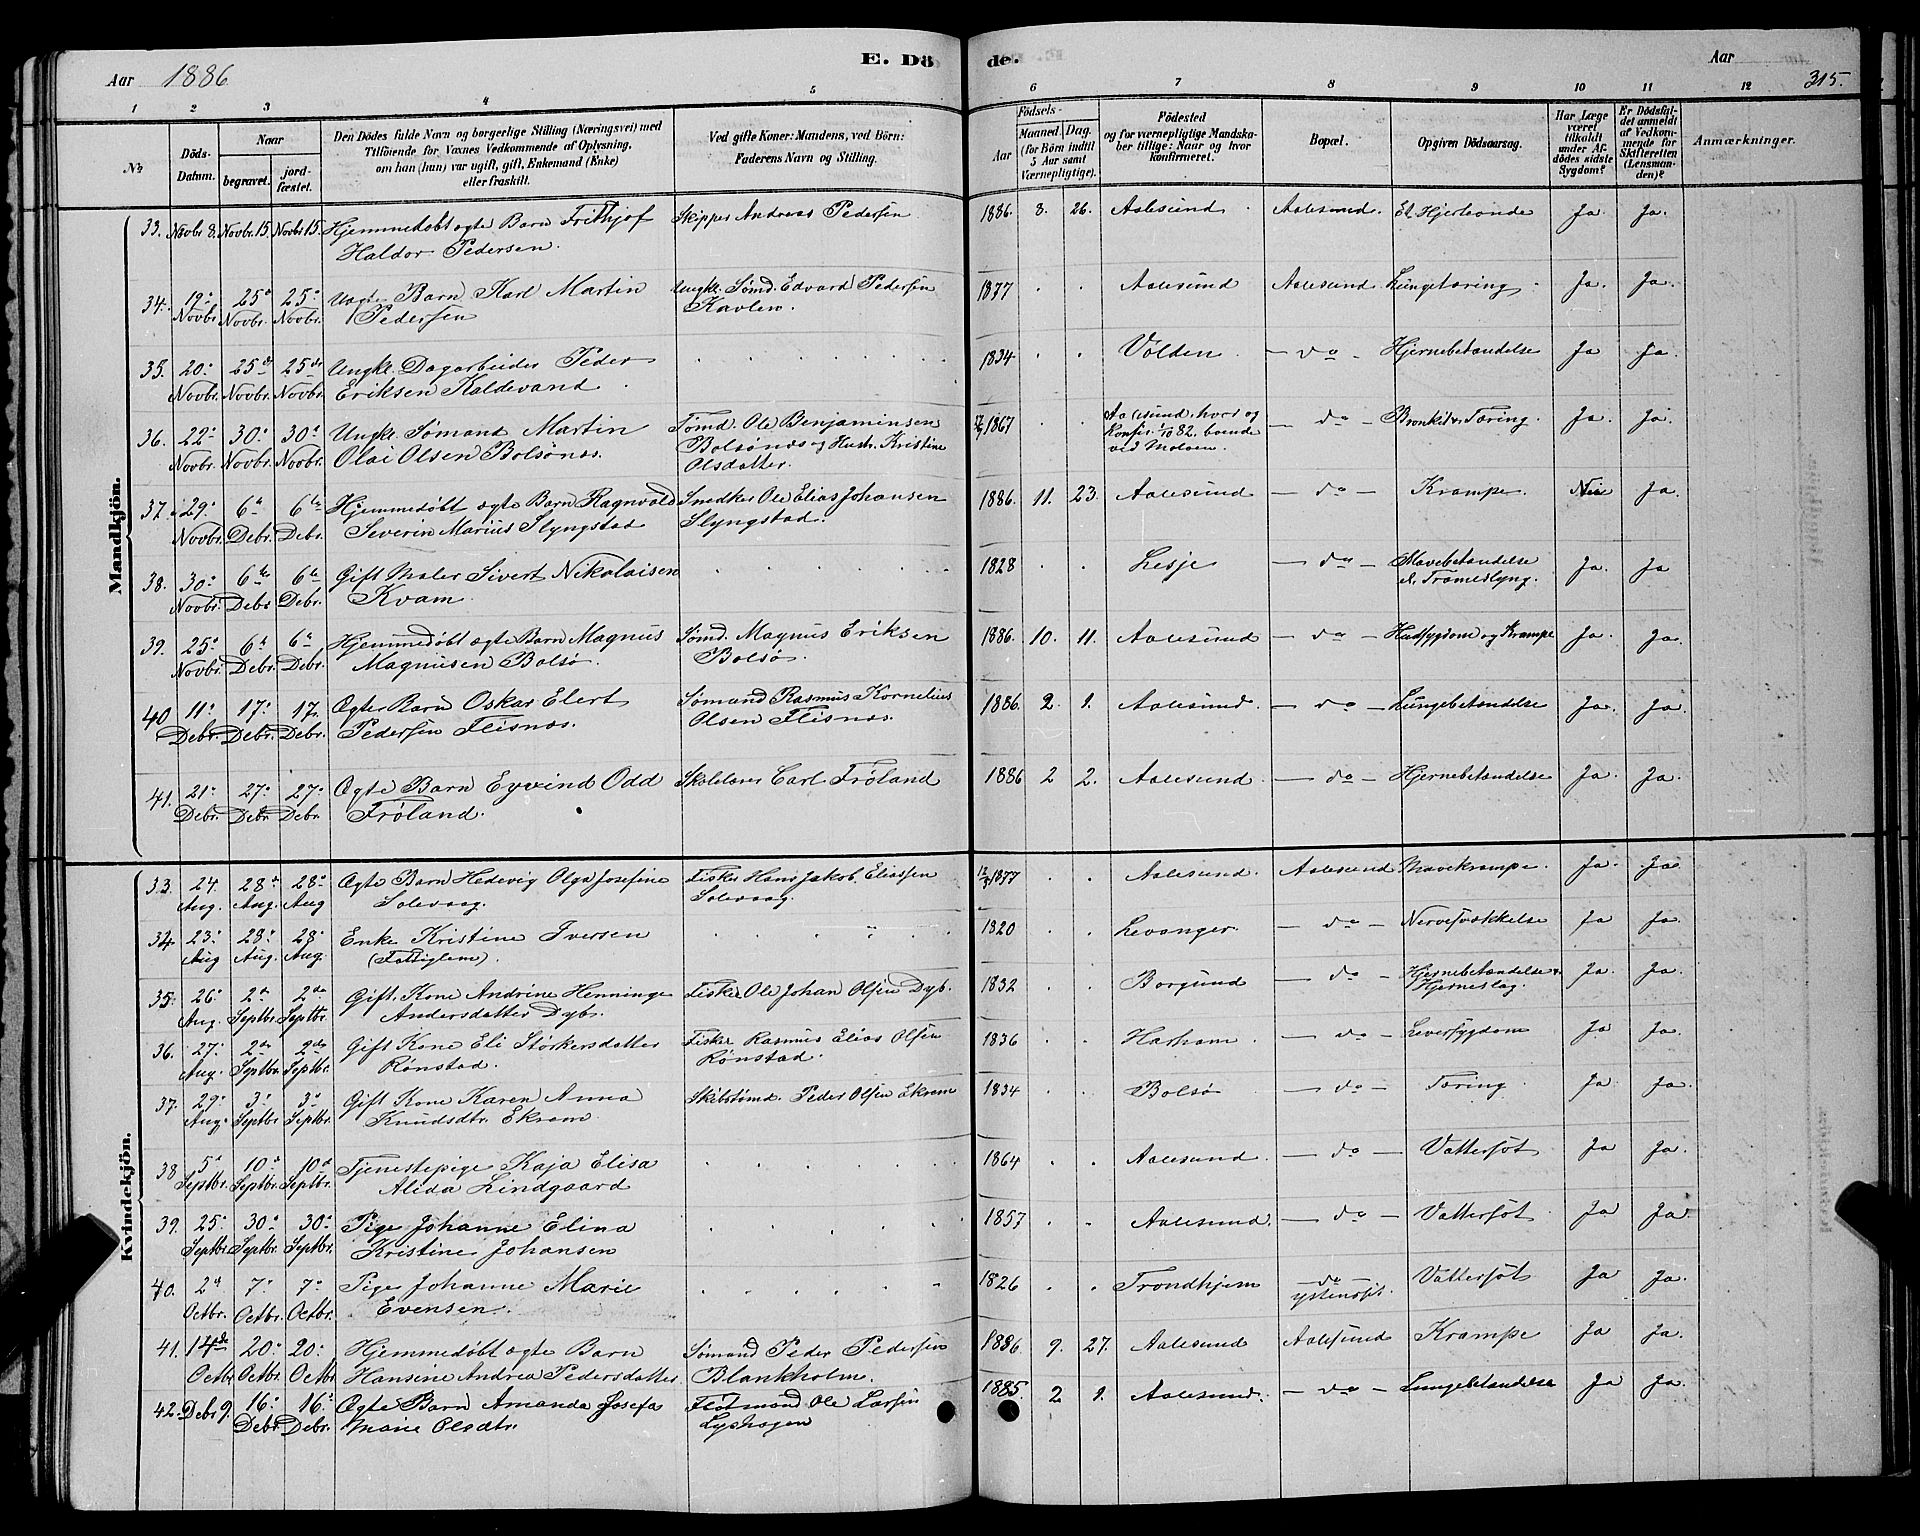 Aar 1886
E. Dö
de.
Aar
315.
1 2 3 4 5 6 7 8 9 10 11 12
№
Döds-Datum.
Naar
begravet.
jord-fæstet.
Den Dödes fulde Navn og borgerlige Stilling (Næringsvei) med
Tilföiende for Voxnes Vedkommende af Oplysning,
om han (hun) var ugift, gift, Enkemand (Enke)
eller fraskilt.
Ved gifte Koner: Mandens, ved Börn:
Faderens Navn og Stilling.
Födsels-
Aar
Maaned. Dag.
(for Börn indtil
5 Aar samt
Værnepligtige).
Födested
og for værnepligtige Mandska-
ber tillige: Naar og hvor
konfirmeret.
Bopæl.
Opgiven Dödsaarsag.
Har Læge
været
tilkaldt
under Af-
dödes sidste
Sygdom?
Er Dödsfal-
det anmeldt
af Vedkom-
mende for
Skifteretten
(Lensman-
den)?
Anmærkninger.
Mandkjön.
33. Novbr 8. Novbr. 15. Novbr. 15. Hjemmedøbt ægte Barn Frithjof Skipper Andreas Pedersen 1886. 8. 26. Aalesund Aalesund. Hjerteonde Ja. Ja.
Haldor Pedersen.
34. 19. 25 25. Uægte Barn Karl Martin Ungk. Sømd. Edvard Pedersen 1877 Aalesund Aalesund Lungetæring Ja. Ja.
Novbr. Novbr. Novbr. Pedersen Kavlen.
35. 20. 25de 25de Ungk. Dagarbeider Peder 1834 Volden – do – Hjernebetændelse Ja Ja.
Novbr. Novbr. Novbr. Eriksen Kaldevand
36. 22. 30. 30. Ungk. Sømand Martin Sømd. Ole Benjaminsen 1867 Aalesund, hvor og – do – Bronkit. Tæring. Ja. Ja.
Novbr. Novbr. Novbr. Olai Olsen Bolsönes. Bolsönes og Hustr. Kristine Konfir. 1/10 82. boende
Olsdatter. ved Moloen.
37. 29. 6te 6te Hjemmedøbt ægte Barn Ragnvald Snedker Ole Elias Johansen 1886. 11. 23. Aalesund – do – Krampe. Nei Ja.
Novbr. Debr. Debr. Severin Marius Slyngstad Slyngstad.
38. 30. 6te 6te Gift Maler Sivert Nikolaisen 1828 Lesje – do – Mavebetændelse Ja. Ja
Novbr. Debr Debr. Kvam.
39. 25 6te 6te Hjemmedøbt ægte Barn Magnus Sømd. Magnus Eriksen 1886. 10. 11. Aalesund – do – Hudsygdom og Krampe Ja. Ja.
Novbr. Debr. Debr. Magnusen Bolsø. Bolsø.
40 11. 17. 17. Ægte Barn Oskar Elert Sømand Rasmus Kornelius 1886. 2. 1. Aalesund. – do – Lungebetændelse Ja. Ja.
Debr. Debr. Debr. Pedersen Flisnæs. Olsen Flisnæs.
41. 21. 27. 27. Ægte Barn Eyvind Odd Skolelærer Carl Frøland 1886 2 2. Aalesund. – do – Hjernebetændelse Ja. Ja.
Debr. Debr Debr. Frøland.
Kvindekjön.
33. 24. 28. 28. Ægte Barn Hedevig Olga Josefine Fisker Hans Jakob Eliassen 1877 Aalesund. Aalesund Mavekrampe. Ja. Ja.
Aug. Aug. Aug Solevaag. Solevaag.
34. 23. 28. 28. Enke Kristine Iversen 1820 Levanger. – do – Nervesvækkelse Ja Ja.
Aug Aug. Aug. (Fattiglem).
35. 26. 2de 2de Gift. Kone Andrine Henninge Fisker Ole Johan Olsen Dyb. 1832 Borgund – do – Hjernebetændelse Ja. Ja.
Aug. Septbr. Septbr. Andersdatter Dyb. Hjerneslag.
36. 27. 2de 2de Gift Kone Eli Størkersdatter Fisker Rasmus Elias Olsen 1836 Harham – do – Leversygdom Ja Ja.
Aug. Septbr. Septbr. Rønstad. Rønstad.
37. 29. 3. 3. Gift Kone Karen Anna Skibstømd. Peder Olsen Ekrem 1834 Bolsø – do – Tæring. Ja Ja.
Aug. Septbr. Septbr. Knudsdtr. Ekrem.
38 5. 10. 10. Tjenestepige Kaja Elisa 1864 Aalesund. – do – Vattersot Ja Ja.
Septbr. Septbr. Septbr. Alida Lindgaard
39. 25. 30. 30. Pige Johanne Elina 1857 Aalesund. – do – Vattersot. Ja Ja
Septbr. Septbr. Septbr. Kristine Johansen
40. 2. 7. 7. Pige Johanne Marie 1826 Trondhjem do Vattersot Ja Ja.
Octbr. Octbr. Octbr. Evensen.
41. 14de 20. 20. Hjemmedøbt ægte Barn Sømand Peder Pedersen 1886 9. 27. Aalesund Aalesund Krampe Ja Ja.
Octbr Octbr. Octbr Hansine Andrea Pedersdatter Blankholm.
42. Debr 9. 16. 16. Ægte Barn Amanda Josefa Flodmand Ole Larsen 1885. 2 1. Aalesund. – do – Lungebetændelse Ja Ja.
Debr. Debr. Marie Olsdtr.